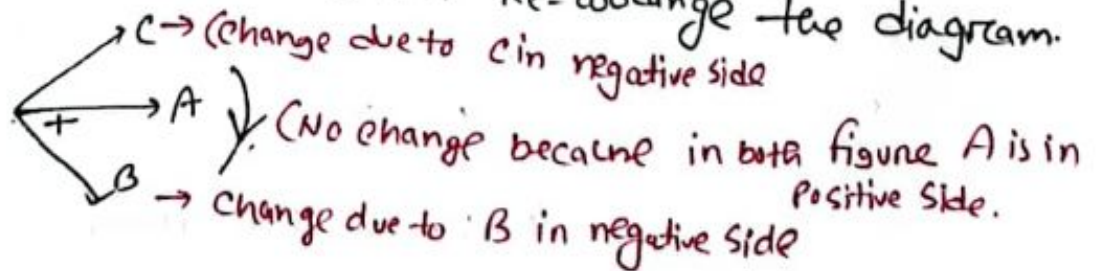 the diagram.
C → (Change due to C in negative side
+ A (No change becaune in both figure A is in
Positive Side.
B → change due to B in negative side